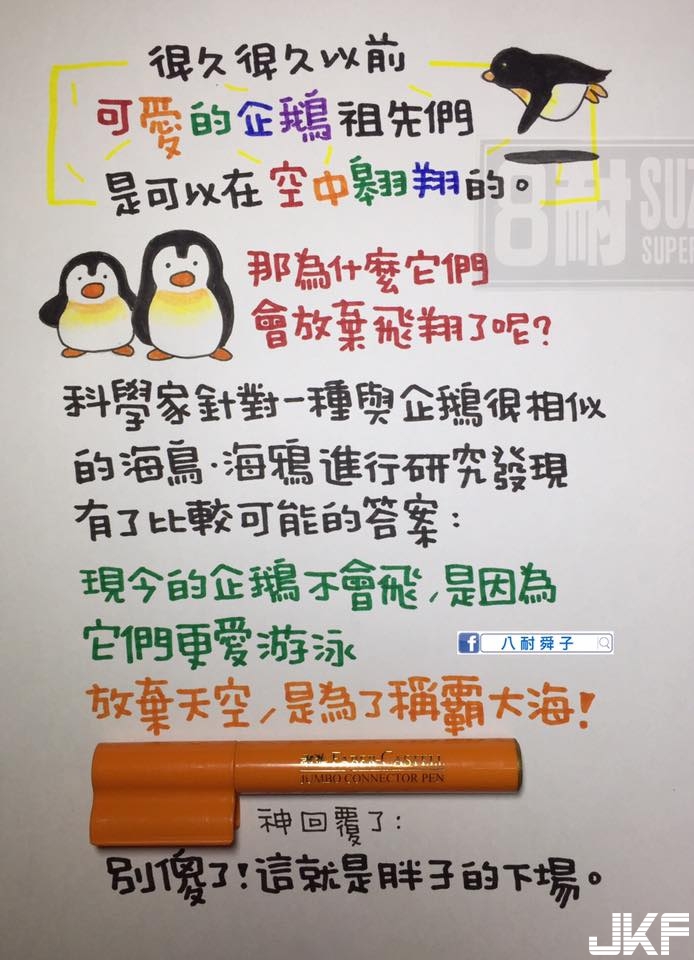 很久很久以前
可愛的企鵝祖先們
是可以在空中翱翔的。
8耐 SUZ
SUPER
那為什麼它們
會放棄飛翔了呢?
科學家針對一種與企鵝很相似
的海鳥·海鴉進行研究發現
有了比較可能的答案:
現今的企鵝不會飛,是因為
它們更愛游泳
f 八耐舜子
放棄天空,是為了稱霸大海!
FABER-CASTELL
JUMBO CONNECTOR PEN
神回覆了:
別傻了!這就是胖子的下場。
JKF